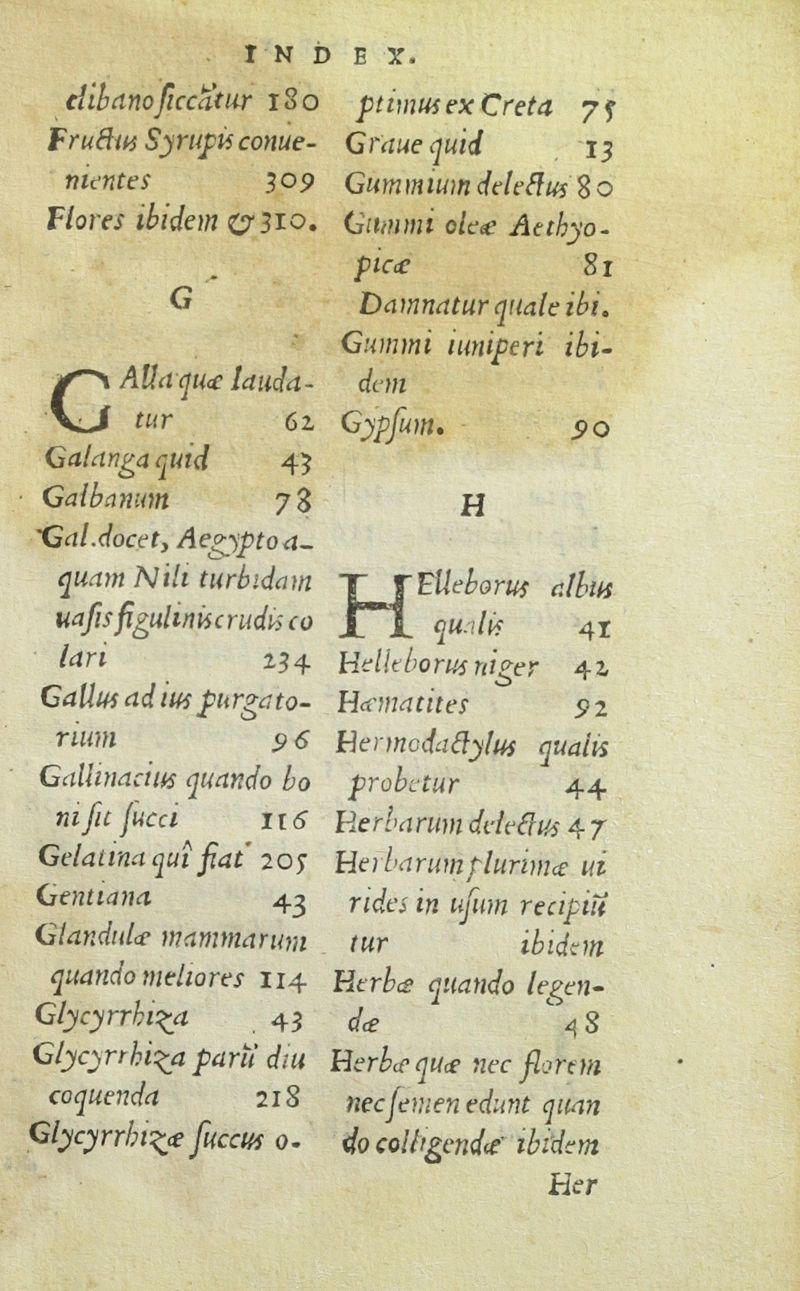 INDEX.
clibano ſiccãtur 180
Fructus Syrupis conue-
nientes 309
Flores ibidem & 310.
G
GAlla quæ lauda-
tur 62
Galanga quid 43
Galbanum 78
Gal. docet, Aegypto a-
quam Nili turbidam
uaſis figulinis crudis co
lari 234
Gallus ad ius purgato-
rium 96
Gallinacius quando bo
ni ſit ſucci 116
Gelatina quî fiat 205
Gentiana 43
Glandulæ mammarum
quando meliores 114
Glycyrrhiza 43
Glycyrrhiza parũ diu
coquenda 218
Glycyrrhizæ ſuccus o-
ptimus ex Creta 75
Graue quid 13
Gummium delectus 80
Gummi oleæ Aethyo-
picæ 81
Damnatur quale ibi.
Gummi iuniperi ibi-
dem
Gypſum. 90
H
HElleborus albus
qualis 41
Helleborus niger 42
Hæmatites 92
Hermodactylus qualis
probetur 44
Herbarum delectus 47
Herbarum plurimæ ui
rides in uſum recipiũ
tur ibidem
Herbæ quando legen-
dæ 48
Herbæ quæ nec florem
nec ſemen edunt quan
do colligendæ ibidem
Her